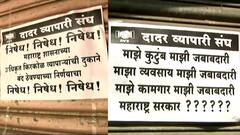 दादर व्यापारी संघ
निषेध! निषेध! निषेध!
महाराष्ट्र शासनाच्या
किरकोळ व्यापाऱ्यांची दुकाने
बंद ठेवण्याच्या निर्णयाचा
निषेध! निषेध! निषेध!
दादर व्यापारी संघ
माझे कुटुंब माझी जबाबदारी
माझा व्यवसाय माझी जबाबदारी
माझे कामगार माझी जबाबदारी
महाराष्ट्र सरकार ??????